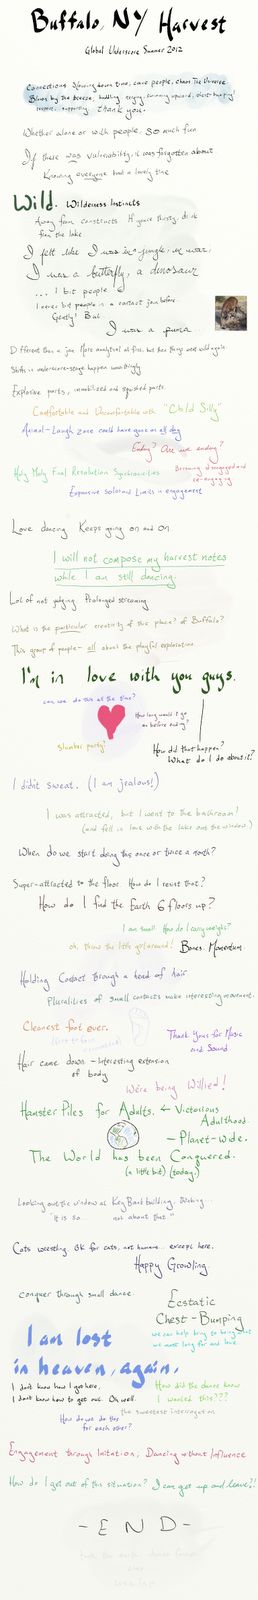 Buffalo, NY Harvest
Global Underscore Summer 2012
Connections. Slowing down time, care people, chaos The Universe
Blown by the breeze, huddling
support. Thank you.
Whether alone or with people, so much fun.
If there was vulnerability, it was forgotten about
Knowing everyone had a lovely time
Wild. Wilderness Instincts
Away from constructs If you're thirsty, drink
from the lake.
I felt like I was in a jungle, in war,
I was a butterfly, a dinosaur
... I bit people
I never bit people in a contact jam before.
Gently! But...
I was a puma...
Different than a jam. More analytical at first, but then things were wild again.
Shifts in underscore-stage happen unwittingly
Explosive parts, immobilized and squished parts.
Comfortable and Uncomfortable with "Child Silly"
Animal-Laugh zone could have gone on all day
Ending? Are we ending?
Holy Moly Final Resolution Synchronicities
Becoming disengaged and
re-engaging
Expansive solos and Limits in engagement
Love dancing Keeps going on and on
I will not compose my harvest notes
while I am still dancing.
Lot of not judging Prolonged streaming
What is the particular creativity of this place? of Buffalo?
This group of people - all about the playful exploration.
I'm in love with you guys.
Can we do this all the time?
How long would it go
on before ending?
Slumber party?
How did that happen?
What do I do about it?
I didn't sweat. (I am jealous!)
I was attracted, but I went to the bathroom!
(and fell in love with the lake out the window.)
When do we start doing this once or twice a month?
Super-attracted to the floor. How do I resist that?
How do I find the Earth 6 floors up?
I am small. How do I carry weight?
oh, throw the little girl around! Bones. Momentum.
Holding Contact through a head of hair
Pluralities of small contacts make interesting movement.
Cleanest foot ever.
Thank Yous for Music
and Sound
Hair came down - Interesting extension
of body.
We're being Willied!
Hamster Piles for Adults. ← Victorious
Adulthood.
- Planet-wide.
The World has been Conquered.
(a little bit) (today.)
Looking out the window at Key Bank building. Blinking...
"It is so... not about that"
Cats wrestling. OK for cats, not humans... except here.
Happy Growling.
Conquer through small dance
Ecstatic
Chest-Bumping
I am lost
in heaven, again.
I don't know how I got here,
I don't know how to get out. Oh well.
How did the dance know
I wanted this???
the sweetest interruption
How do we do this
for each other?
Engagement through Imitation; Dancing without Influence
How do I get out of this situation? I can get up and leave?!
- E N D -